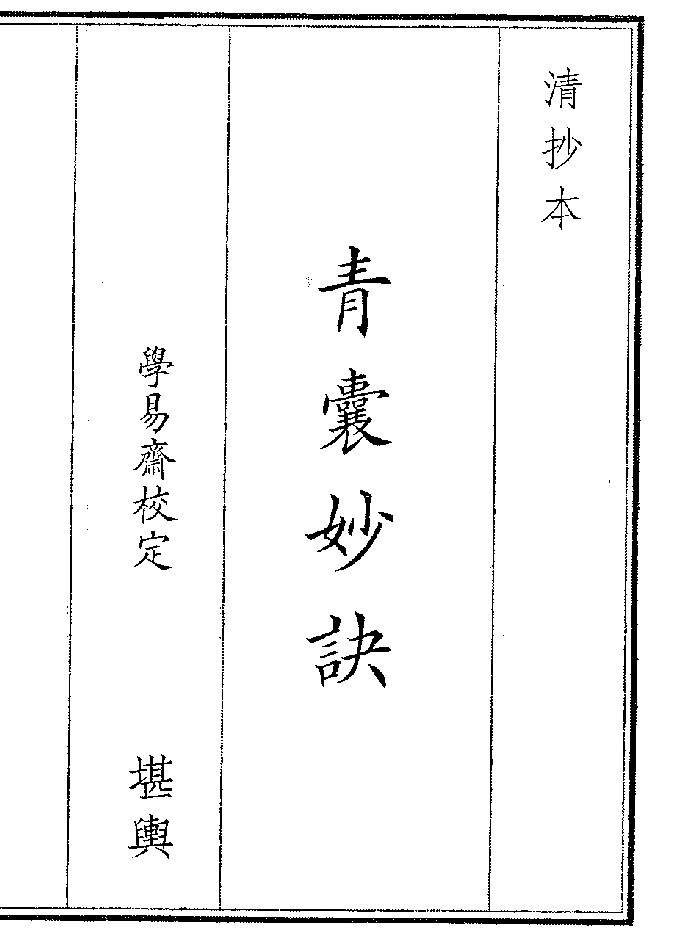 清抄本
青囊妙訣
學易齋校定
堪輿